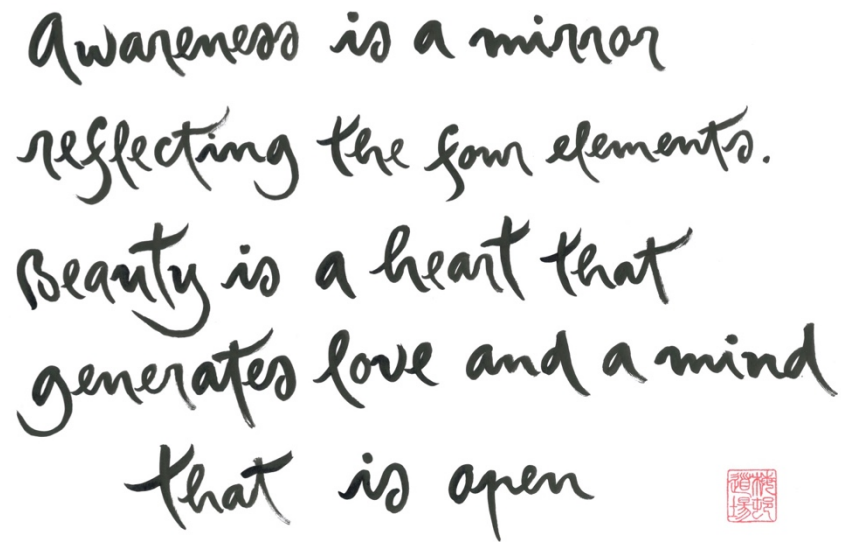 Awareness is a mirror
reflecting the four elements.
Beauty is a heart that
generates love and a mind
that is open
梅邨
道場